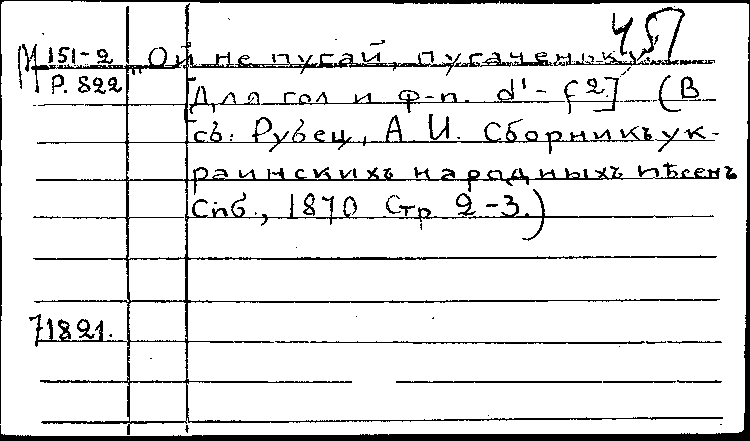 457
М 151-2 „Ой не пугай, пугаченьку.
Р. 822 [Для гол и ф-п. d¹ - f²] (В
сб: Рубец, А И. Сборникъ ук-
раинскихъ народныхъ пѣсенъ
Спб., 1870 Стр 2-3.)
71821.